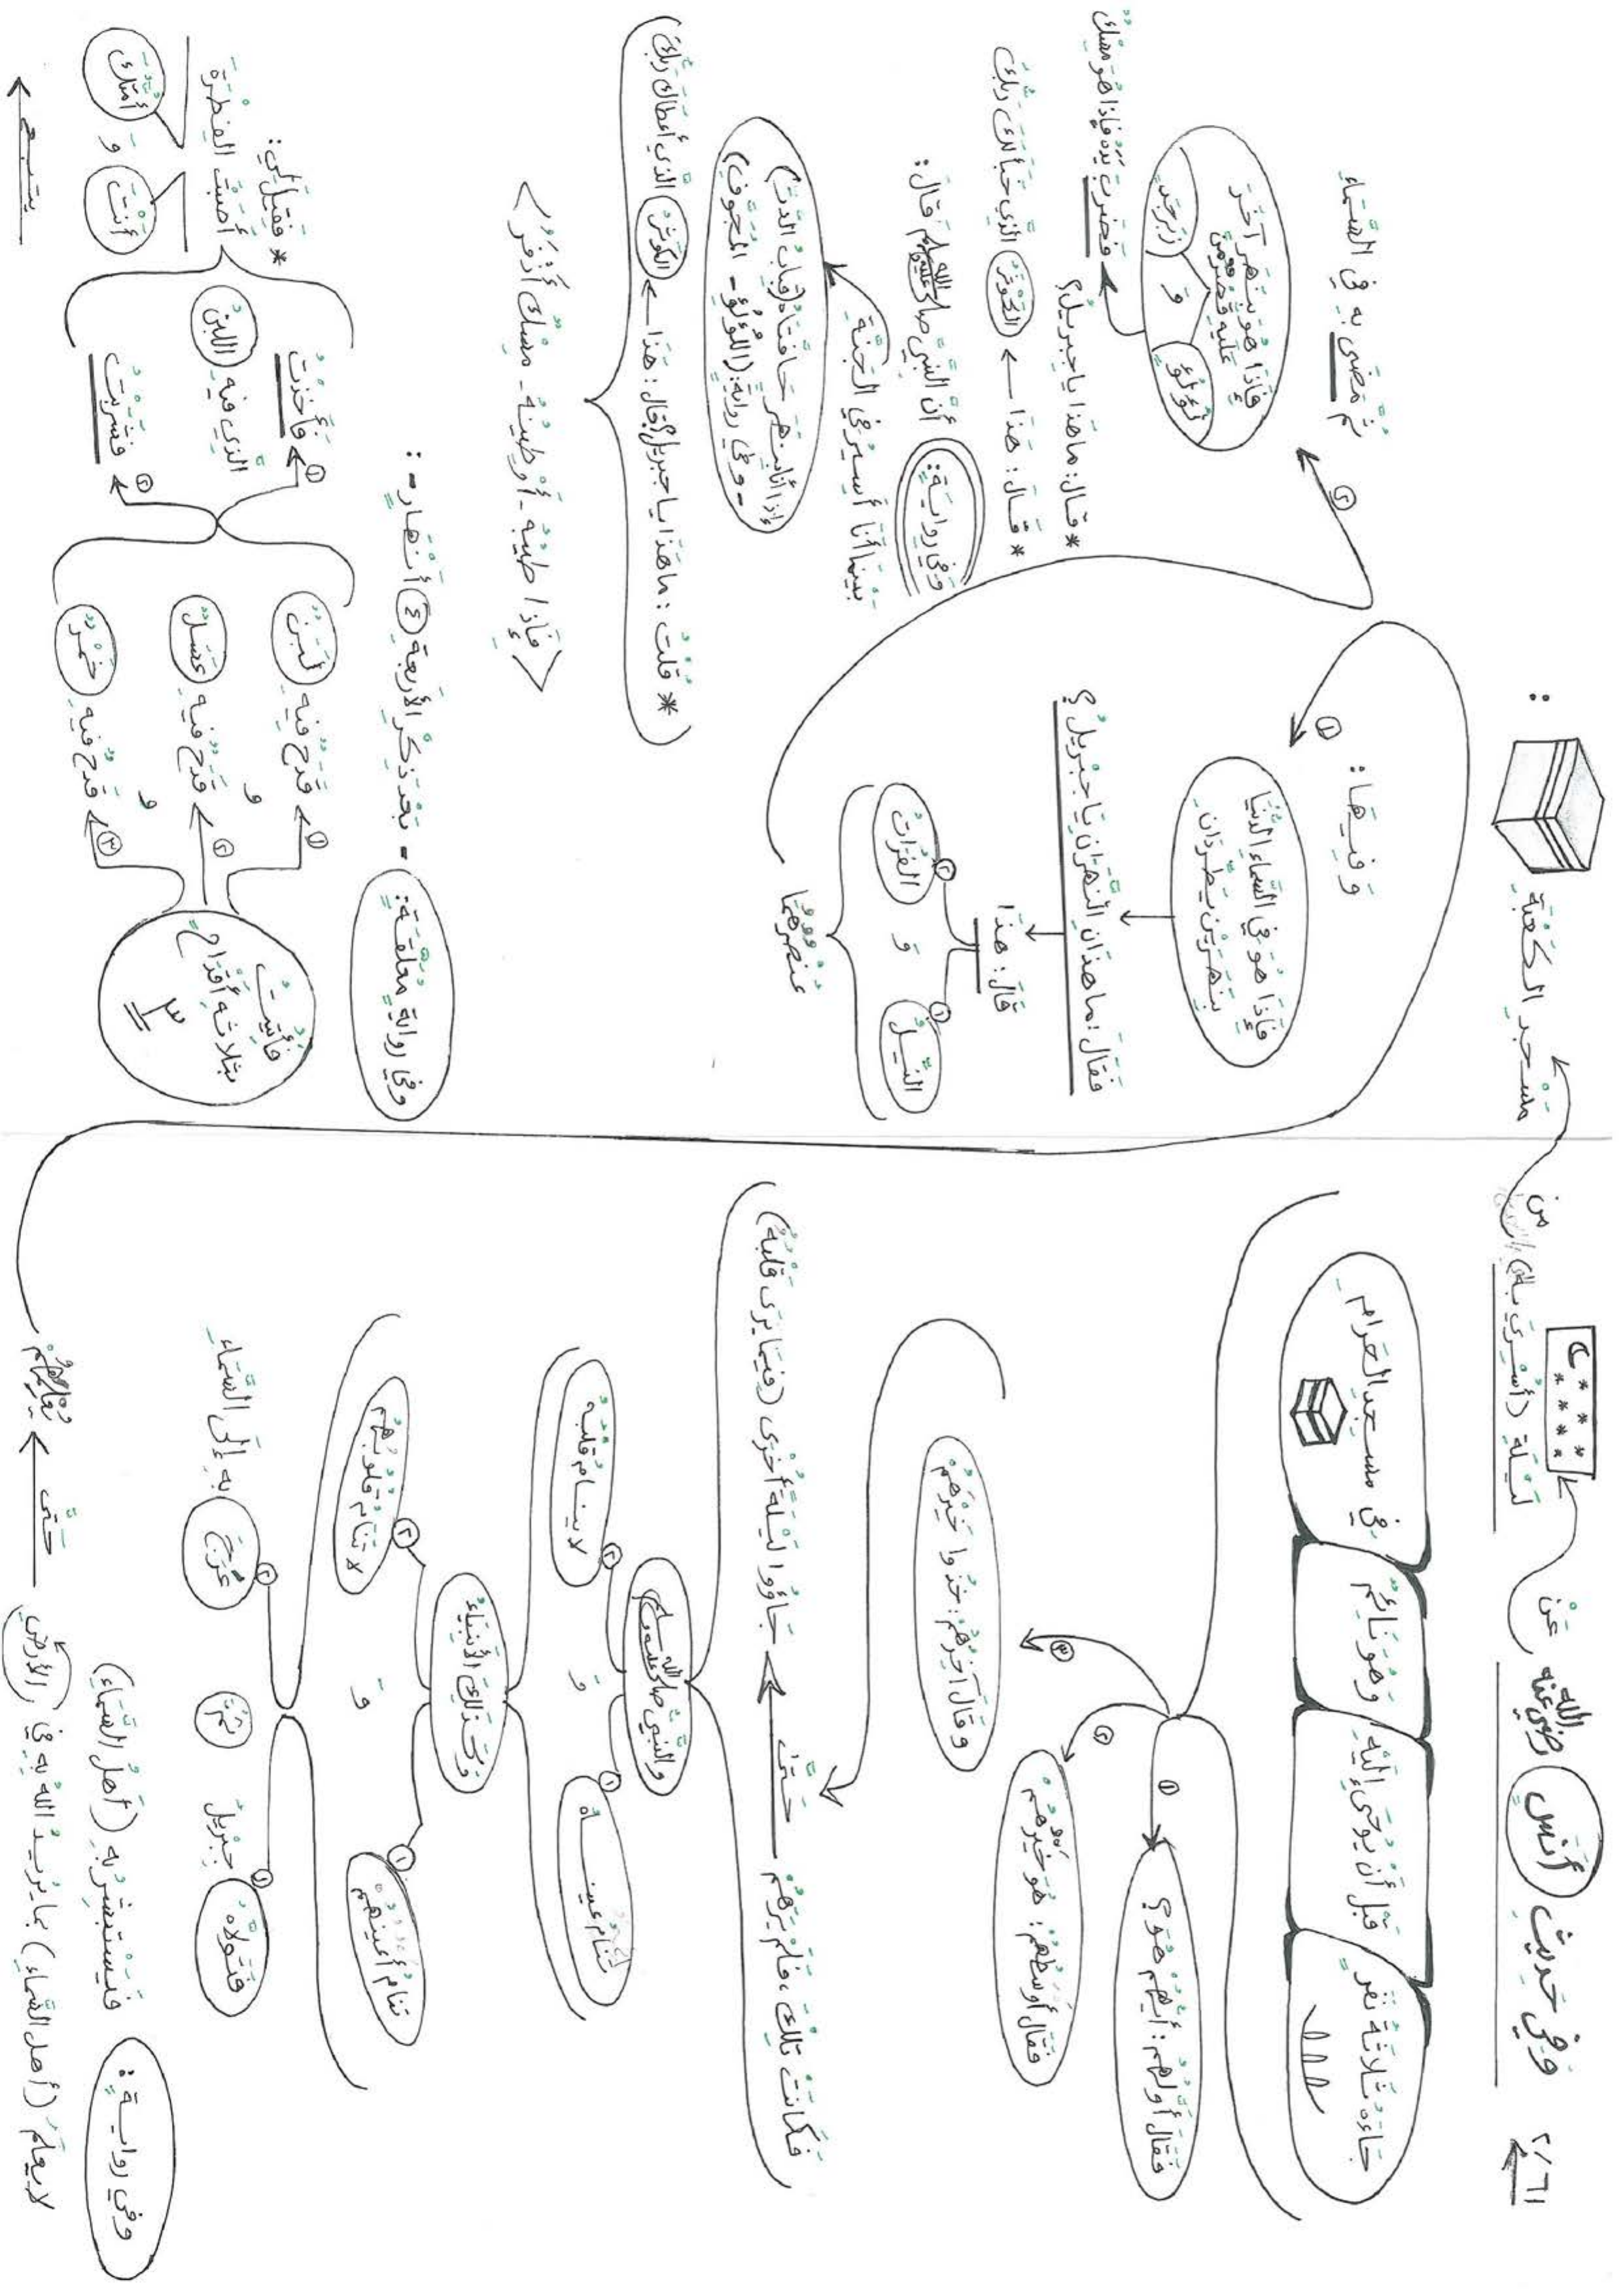 ٢/٦١
وَفِي حَدِيثِ أَنَسٍ رضي الله عنه عَنْ
لَيْلَةِ (أُسْرِيَ بِالنَّبِيِّ) مِن
مَسْجِدِ الكَعْبَةِ :
جَاءَهُ ثَلَاثَةُ نَفَرٍ
قَبْلَ أَنْ يُوحَى إِلَيْهِ
وَهُوَ نَائِمٌ
فِي مسجِدِ الحَرامِ
① فَقَالَ أَوَّلُهُم: أَيُّهُم هُوَ؟
② فَقَالَ أَوْسَطُهُمْ: هُوَ خَيْرُهُمْ
③ وَقَالَ آخِرُهُمْ: خُذُوا خَيْرَهُمْ
فَكَانَتْ تِلْكَ، فَلَمْ يَرَهُمْ حَتَّى جَاؤُوا لَيْلَةً أُخْرَى (فِيمَا يَرَى قَلْبُهُ)
والنَّبِيُّ صلى الله عليه وسلم
① تَنَامُ عَيْنَاهُ
وَ
② لا يَنَامُ قَلْبُهُ
وَكَذَلِكَ الأَنْبِيَاءُ
① تَنَامُ أَعْيُنُهُم
وَ
② لا تَنَامُ قُلُوبُهُم
① فَتَوَلَّاهُ جِبْرِيلُ
ثُمَّ
② عَرَجَ بِهِ إِلَى السَّمَاءِ
وفي روايةٍ:
فَيَسْتَبْشِرُ بِهِ (أَهْلُ السَّمَاءِ)
لا يعلَمُ (أهل السَّماءِ) بما يُرِيدُ اللهُ بِهِ في (الأرضِ) حَتَّى يُعْلِمَهُمْ
وَفِيهَا:
① فَإِذَا هُوَ فِي السَّمَاءِ الدُّنْيَا
بِنَهَرَيْنِ يَطَّرِدَانِ
فَقَالَ: ما هَذَانِ النَّهَرَانِ يَا جِبْرِيلُ؟
قَالَ: هَذَا
① النِّيلُ
وَ
② الفُرَاتُ
عُنْصُرُهُمَا
② ثُمَّ مَضَى بِهِ فِي السَّمَاءِ
فَإِذَا هُوَ بِنَهَرٍ آخَرَ
عَلَيْهِ قَصْرٌ مِنْ
لُؤْلُؤٍ وَ زَبَرْجَدٍ
فَضَرَبَ يَدَهُ فَإِذَا هُوَ مِسْكٌ
* قَالَ: مَا هَذَا يَا جِبْرِيلُ؟
* قَالَ: هَذَا ← الكَوْثَرُ الَّذِي خَبَأَ لَكَ رَبُّكَ
وَفِي رِوَايَةٍ: أَنَّ النَّبِيَّ صلى الله عليه وسلم قَالَ:
بَيْنَمَا أَنَا أَسِيرُ فِي الجَنَّةِ
إِذَا أَنَا بِنَهَرٍ حَافَتَاهُ (قِبَابُ الدُّرِّ)
- وَفِي رِوَايَةٍ: (اللُّؤْلُؤِ - المُجَوَّفِ)
* قُلْتُ: مَا هَذَا يَا جِبْرِيلُ؟ قَالَ: هَذَا ← الكَوْثَرُ الَّذِي أَعْطَاكَ رَبُّكَ
<فَإِذَا طِيبُهُ - أَوْ طِينُهُ - مِسْكٌ أَذْفَرُ>
وفي روايةٍ معلَّقَةٍ: - بَعْدَ ذِكْرِ الأَرْبَعَةِ ④ أَنْهَارٍ - :
فَأُتِيتُ
بِثَلَاثَةِ أَقْدَاحٍ
٣
① قَدَحٌ فِيهِ لَبَنٌ
و
② قَدَحٌ فِيهِ عَسَلٌ
و
③ قَدَحٌ فِيهِ خَمْرٌ
① فَأَخَذْتُ
الَّذِي فِيهِ اللَّبَنُ
② فَشَرِبْتُ
* فَقِيلَ لِي:
أَصَبْتَ الفِطْرَةَ
أَنْتَ وَ أُمَّتُكَ
يتبع